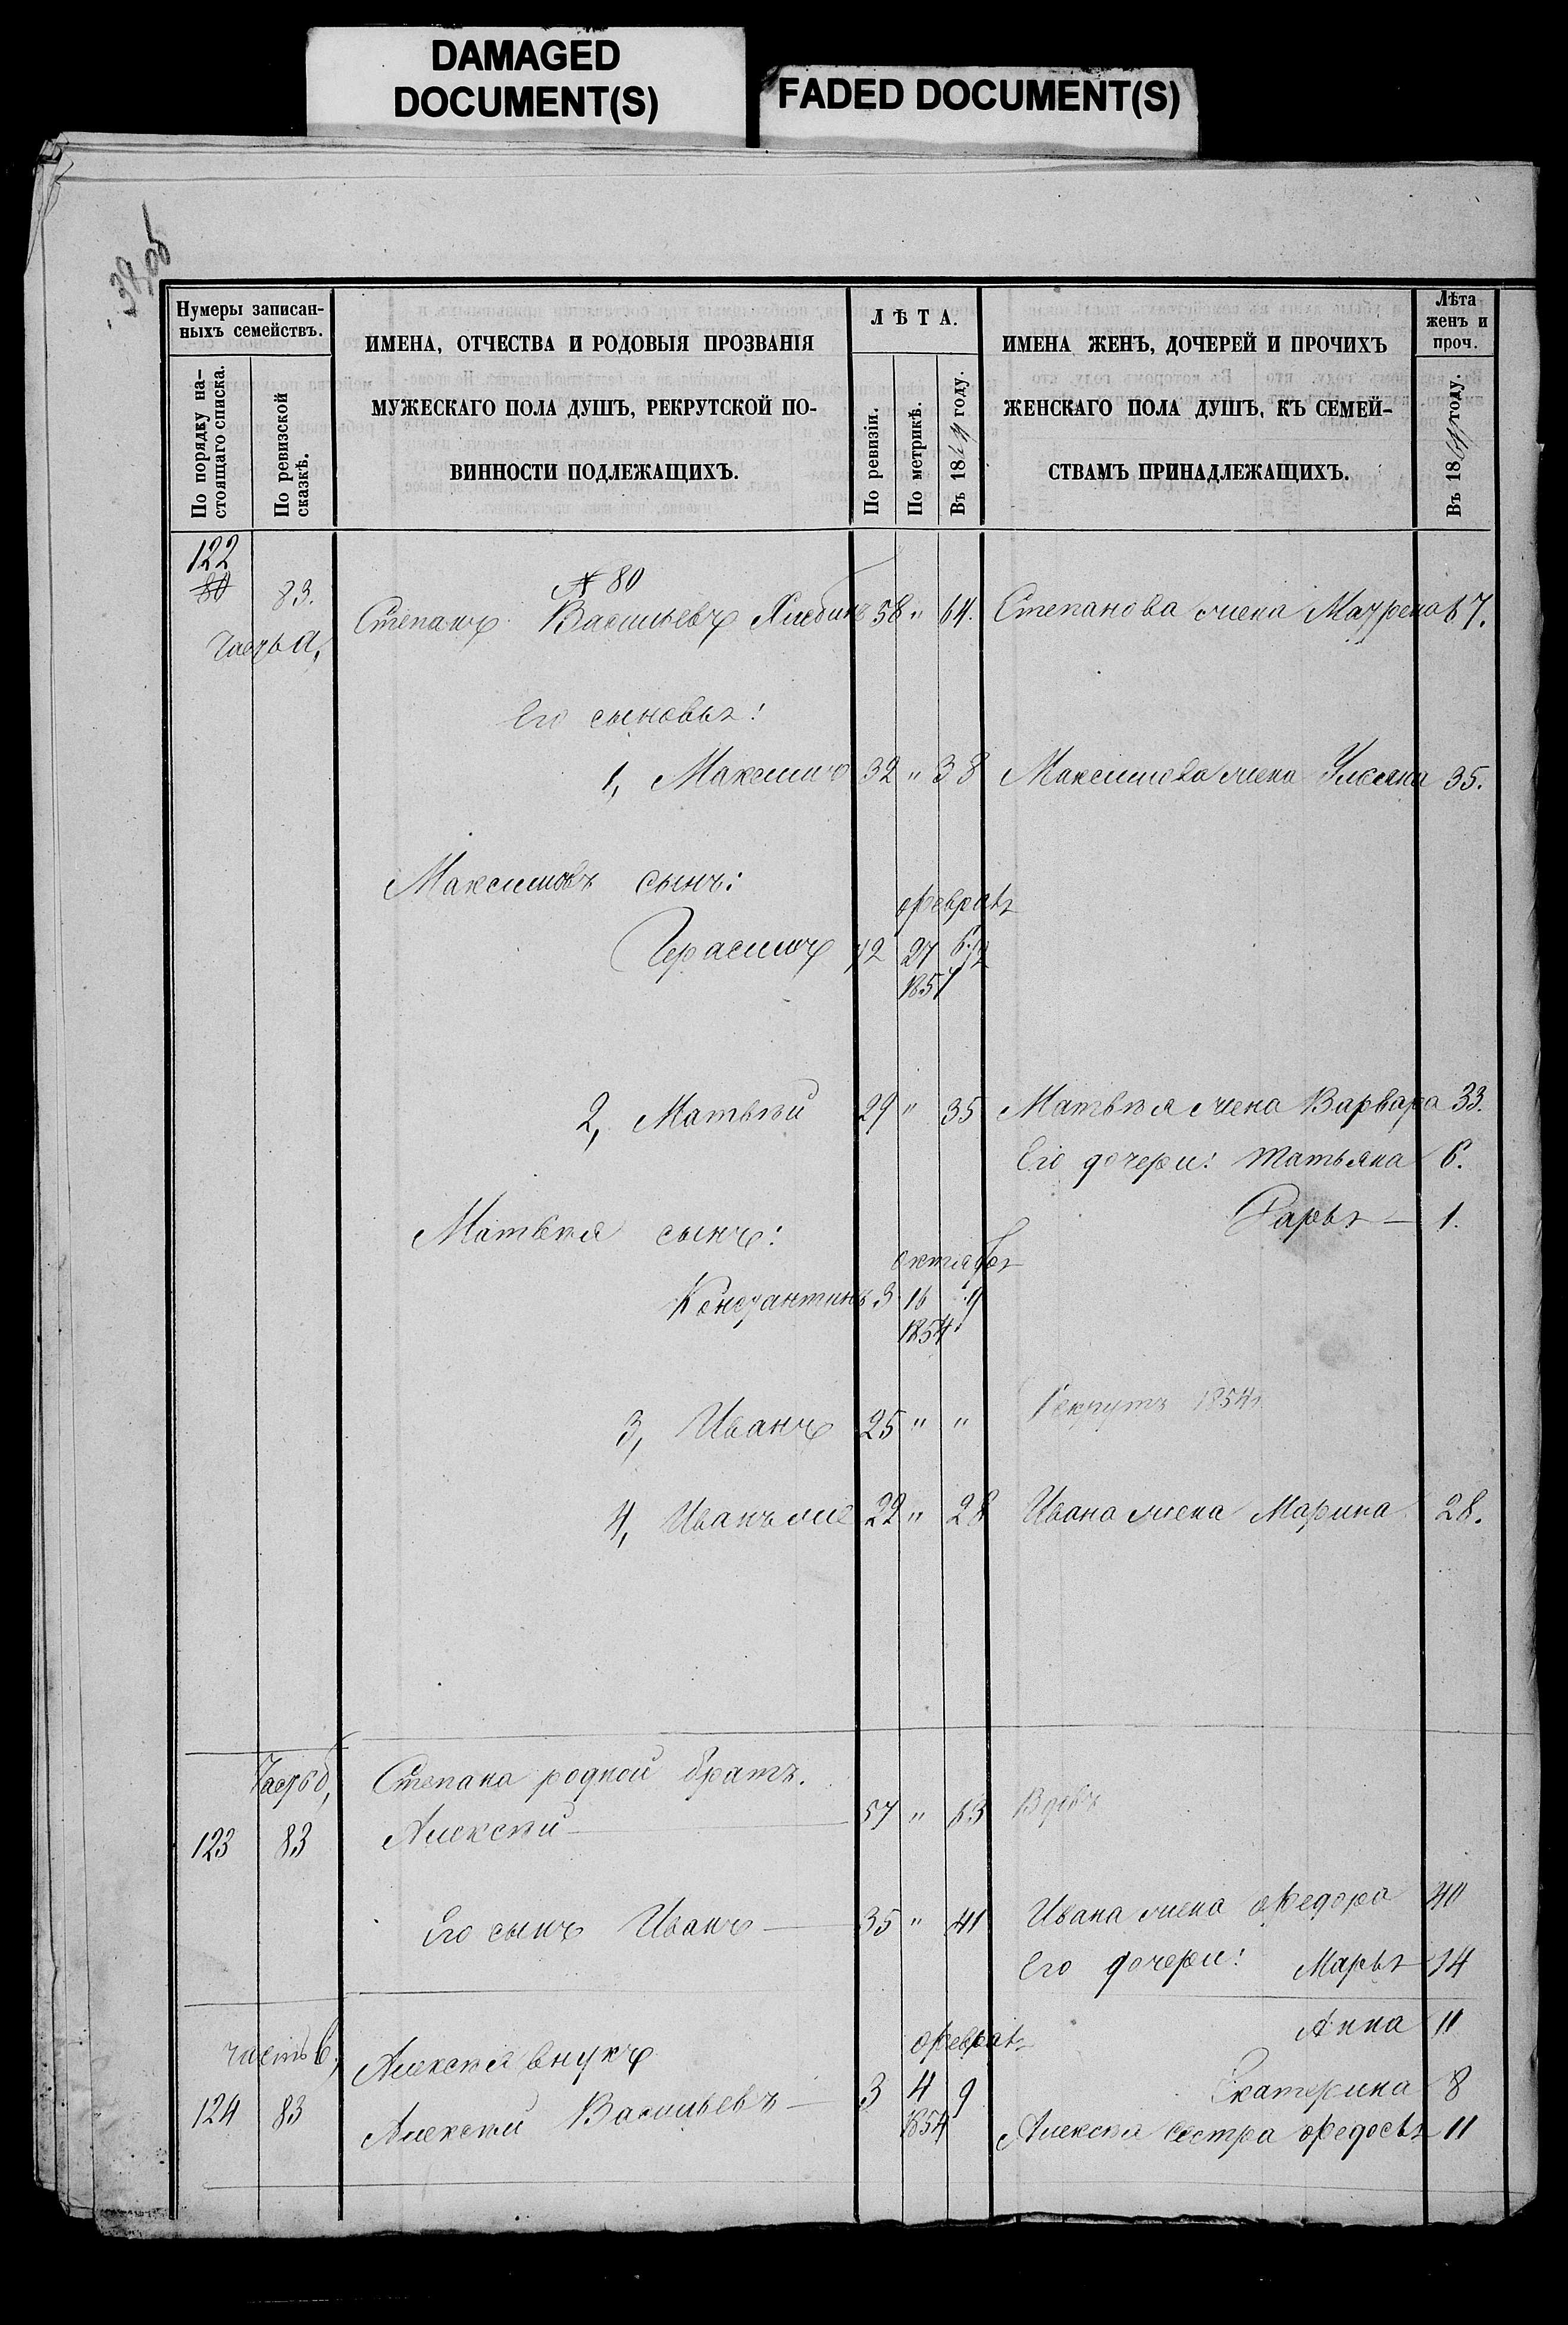 DAMAGED
DOCUMENT(S)
FADED DOCUMENT(S)
Нумеры записан-
ныхъ семействъ.
По порядку на-
стоящаго списка.
По ревизской
сказкѣ.
ИМЕНА, ОТЧЕСТВА И РОДОВЫЯ ПРОЗВАНІЯ
МУЖЕСКАГО ПОЛА ДУШЪ, РЕКРУТСКОЙ ПО-
ВИННОСТИ ПОДЛЕЖАЩИХЪ.
ЛѢТА.
По ревизіи.
По метрикѣ.
Въ 1864 году.
ИМЕНА ЖЕНЪ, ДОЧЕРЕЙ И ПРОЧИХЪ
ЖЕНСКАГО ПОЛА ДУШЪ, КЪ СЕМЕЙ-
СТВАМЪ ПРИНАДЛЕЖАЩИХЪ.
Лѣта
женъ и
проч.
Въ 1864 году.
122
80 83. № 80
Степанъ Васильевъ 58 " 64. Степанова жена Маурена 67.
Часть а,
Его сыновья:
1, Максимъ 32 " 38 Максимова жена Ульяна 35.
Максимовъ сынъ:
февраля
Герасимъ 12 27 12
1851
2, Матвѣй 29 " 35 Матвѣя жена Варвара 33.
Его дочери: Татьяна 6.
Дарья — 1.
Матвѣя сынъ:
октября
Константинъ 3 16 9
1854
3, Иванъ 25 " " Рекрутъ 1854
4, Иванъ же 22 " 28 Ивана жена Марина 28.
Часть б, Степана родной братъ.
123 83 Алексѣй — 57 " 63 Вдовъ
Его сынъ Иванъ — 35 " 41 Ивана жена Федора 40
Его дочери: Марья 14
Анна 11
часть в, Алексѣя внукъ февраля
Екатерина 8
124 83 Алексѣй Васильевъ — 3 4 9
1854
Алексѣя сестра Федосья 11